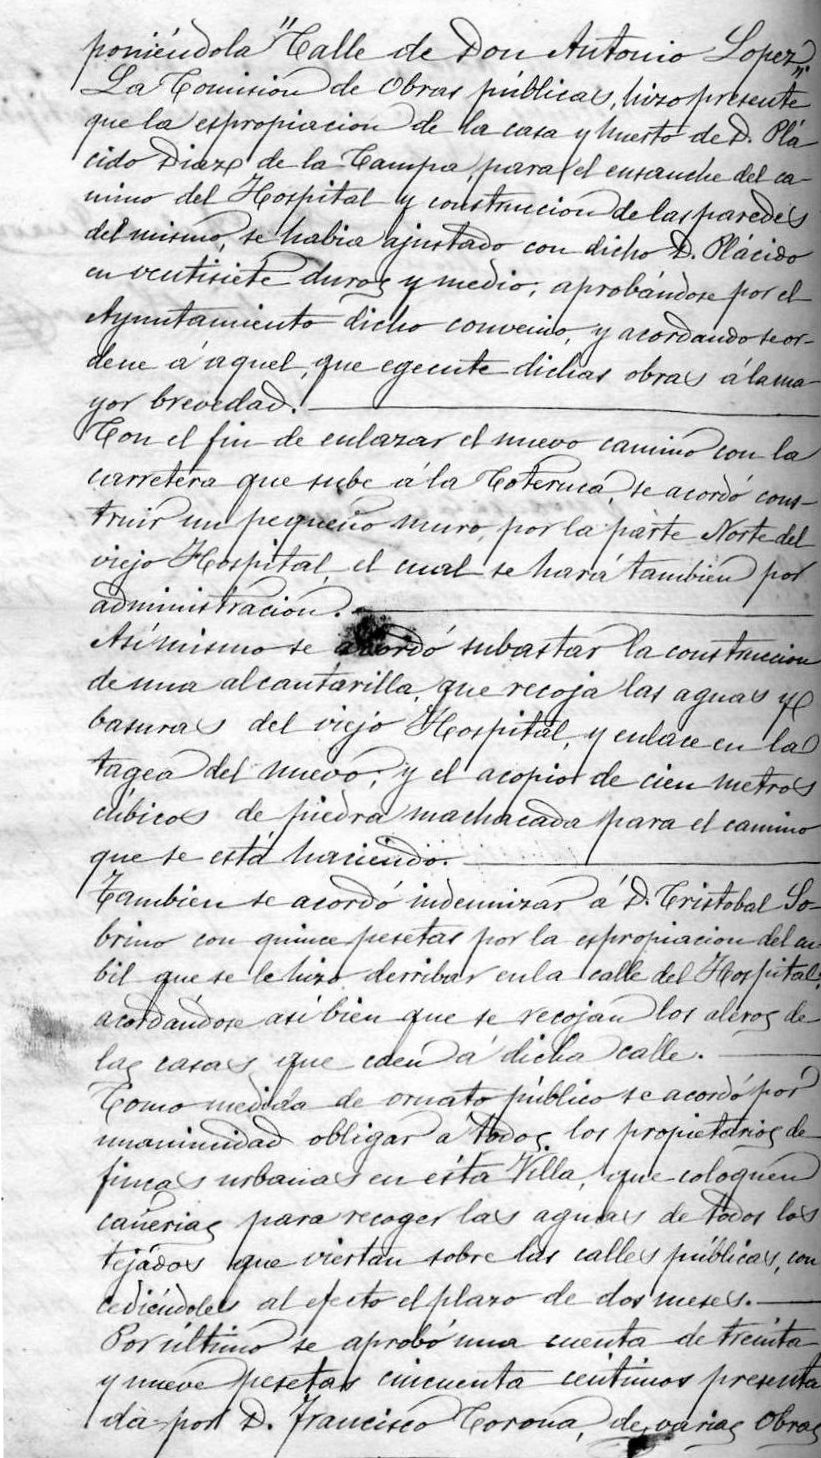 poniéndola "Calle de Don Antonio Lopez".
La Comision de Obras públicas, hizo presente
que la espropiacion de la casa y huerto de D. Plá-
cido Diaz de la Campa, para el ensanche del ca-
mino del Hospital y construccion de las paredes
del mismo, se habia ajustado con dicho D. Plácido
en ventisiete duros y medio; aprobándose por el
Ayuntamiento dicho convenio, y acordando se or-
dene á aquel, que egecute dichas obras á la ma-
yor brevedad.
Con el fin de enlazar el nuevo camino con la
carretera que sube á la Coteruca, se acordó cons-
truir un pequeño muro, por la parte Norte del
viejo Hospital, el cual se hará tambien por
administración.
Asímismo se acordó subastar la construccion
de una alcantarilla, que recoja las aguas y
basuras del viejo Hospital, y enlace en la
tagea del nuevo; y el acopio de cien metros
cúbicos de piedra machacada para el camino
que se está haciendo.
Tambien se acordó indemnizar á D. Cristobal So-
brino con quince pesetas por la espropiacion del cu-
bil que se le hizo derribar en la calle del Hospital;
acordándose asi bien que se recojan los aleros de
las casas que caen á dicha calle.
Como medida de ornato público se acordó por
unanimidad obligar a todos los propietarios de
fincas urbanas en ésta Villa, que coloquen
cañerias para recoger las aguas de todos los
tejádos que viertan sobre las calles públicas, con
cediéndoles al efecto el plazo de dos meses.
Por último se aprobó una cuenta de treinta
y nueve pesetas cincuenta centimos presenta
da por D. Francisco Corona, de varias Obras